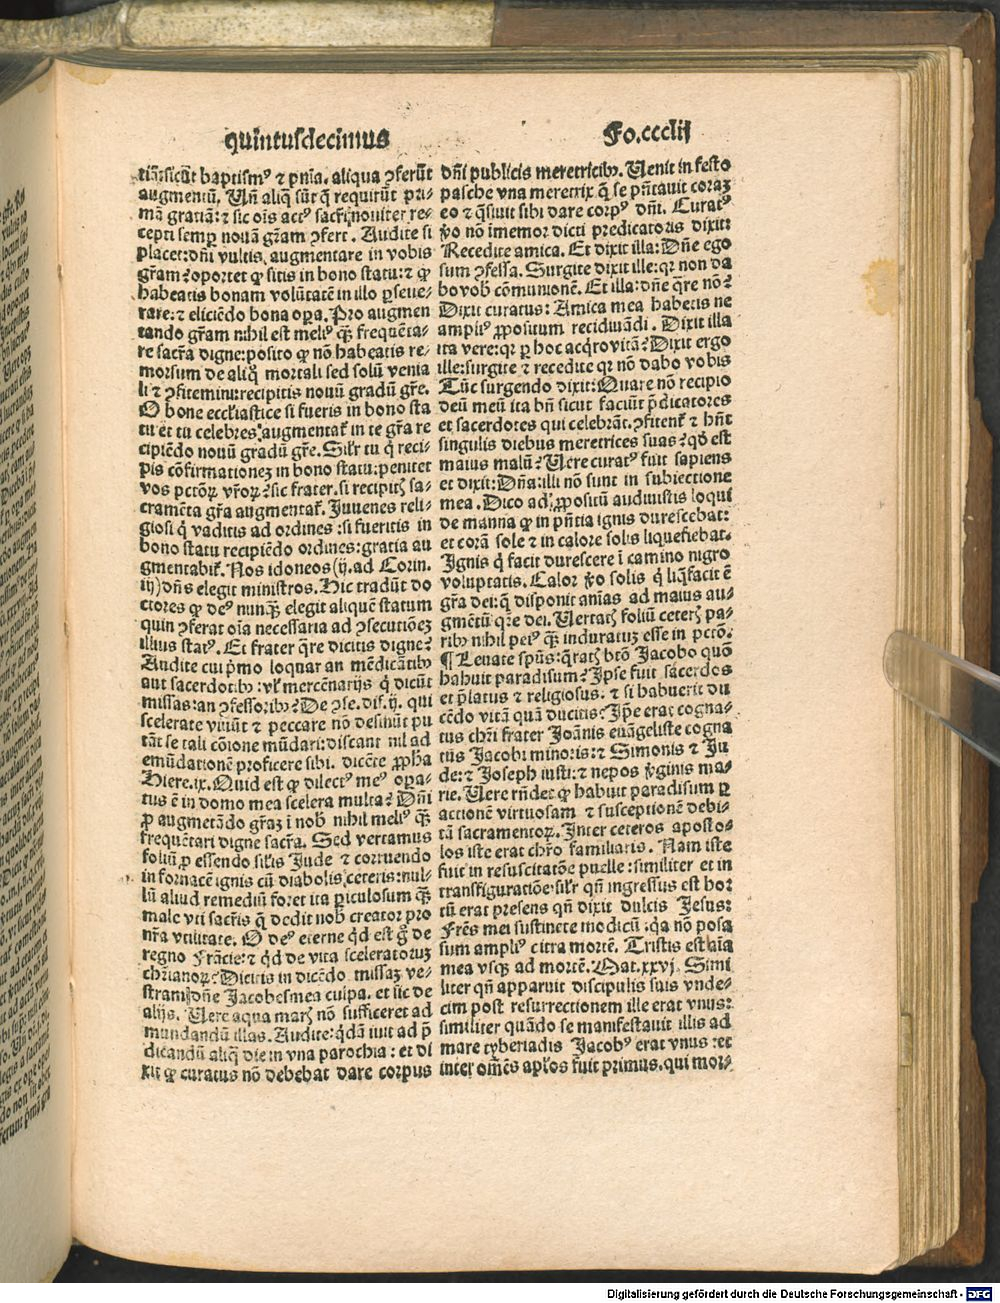 quintusdecimus
Fo.ccclij
tiā:sicūt baptismꝰ ⁊ pnīa. aliqua ꝯferūt
augmentū. Un̄ aliq̄ sūt q̄ requirūt pri⸗
mā gratiā: ⁊ sic oīs actꝰ sacr̄i nouiter re⸗
cepti semꝑ nouā gr̄am ꝯfert. Audite si
placet:dn̄i vultis, augmentare in vobis
gr̄am? oportet ꝙ sitis in bono statu: ⁊ ꝙ
habeatis bonam volūtatē in illo ꝑseue⸗
rare: ⁊ eliciēdo bona oꝑa. Pro augmen
tando gr̄am nihil est meliꝰ qͣꝫ frequēta⸗
re sacr̄a digne:posito ꝙ nō habeatis re⸗
morsum de aliq̄ mortali sed solū venia
li ⁊ ꝯfitemini:recipitis nouū gradū gr̄e.
O bone eccl̄iastice si fueris in bono sta
tu et tu celebres, augmentat̄ in te gr̄a re
cipiēdo nouū gradū gr̄e. Sil̄r tu q̄ reci⸗
pis cōfirmationeꝫ in bono statu:penitet
vos pctōꝝ vr̄oꝝ? sic frater. si recipitꝭ sa⸗
cramēta gr̄a augmentat̄. Juuenes reli⸗
giosi q̄ vaditis ad ordines : si fueritis in
bono statu recipiēdo ordines:gratia au
gmentabit̄. Nos idoneos (ij. ad Corin.
iij) dn̄s elegit ministros. Hic tradūt do
ctores ꝙ deꝰ nunqͣꝫ elegit aliquē statum
quin ꝯferat oīa necessaria ad ꝯsecutiōeꝫ
illius statꝰ. Et frater q̄re dicitis digne?
Audite cui p̄mo loquar an mēdicātibꝰ
aut sacerdotibꝰ : vl̄ mercēnarijs q̄ dicūt
missas: an ꝯfessoribꝰ? De ꝯse. dis. ij. qui
scelerate viuūt ⁊ peccare nō desinūt pu
tāt se tali cōione mūdari:discant nil ad
emūdationē proficere sibi. dicēte ꝓpha
Hiere. ix. Quid est ꝙ dilectꝰ meꝰ oꝑa⸗
tus ē in domo mea scelera multa? Dn̄i
ꝓ augmetādo gr̄aꝫ ī nob̄ nihil meliꝰ qͣꝫ
frequētari digne sacr̄a. Sed vertamus
foliū ꝓ essendo sil̄is Jude ⁊ corruendo
in fornacē ignis cū diabolis, ceteris:nul⸗
lū aliud remediū foret ita ꝑiculosum qͣꝫ
male vti sacr̄is q̄ dedit nob̄ creator pro
nr̄a vtilitate. O deꝰ eterne qͥd est g̊ de
regno Frācie: ⁊ qͥd de vita sceleratoruꝫ
chr̄ianoꝝ? Dicitis in dicēdo missaꝫ ve⸗
stram dn̄e Jacobe:mea culpa. et sic de
alijs. Uere aqua marꝭ nō sufficeret ad
mundandū illas. Audite: qͥdā iuit ad p̄
dicandū aliq̄ die in vna parochia : et di
xit ꝙ curatus nō debebat dare corpus
dn̄i publicis meretricibꝰ. Uenit in festo
pasche vna meretrix q̄ se pn̄tauit coraꝫ
eo ⁊ q̄siuit sibi dare corpꝰ dn̄i. Curatꝰ
v̄o nō īmemor dicti predicatoris dixit:
Recedite amica. Et dixit illa: Dn̄e ego
sum ꝯfessa. Surgite dixit ille:qꝛ non da
bo vob̄ cōmunionē. Et illa:dn̄e q̄re nō?
Dixit curatus: Amica mea habetis ne
ampliꝰ ꝓpositum recidiuādi. Dixit illa
ita vere:qꝛ ꝑ hoc acq̄ro vitā? Dixit ergo
ille:surgite ⁊ recedite qꝛ nō dabo vobis
Tūc surgendo dixit: Quare nō recipio
deū meū ita bn̄ sicut faciūt p̄dicatores
et sacerdotes qui celebrāt. ꝯfitent̄ ⁊ hn̄t
singulis diebus meretrices suas? qd̄ est
maius malū? Uere curatꝰ fuit sapiens
et dixit: Dn̄a:illi nō sunt in subiectione
mea. Dico ad ꝓpositū audiuistis loqui
de manna ꝙ in pn̄tia ignis durescebat:
et corā sole ⁊ in calore solis liquefiebat.
Ignis q̄ facit durescere ī camino nigro
voluptatis. Calor v̄o solis q̄ liq̄facit ē
gr̄a dei: q̄ disponit aīas ad maius au⸗
gmētū gr̄e dei. Uertatꝭ foliū ceterꝭ pa⸗
ribꝰ nihil peiꝰ qͣꝫ induratuꝫ esse in pctō.
¶ Leuate spūs:q̄ratꝭ btō Jacobo quō
habuit paradisum? Ipse fuit sacerdos
et p̄latus ⁊ religiosus. ⁊ si habuerit du
cēdo vitā quā ducitis? Ip̄e erat cogna⸗
tus chr̄i frater Joānis euāgeliste cogna
tus Jacobi minoris: ⁊ Simonis ⁊ Ju
de: ⁊ Joseph iusti: ⁊ nepos v̄ginis ma⸗
rie. Uere rn̄det ꝙ habuit paradisum ꝑ
actionē virtuosam ⁊ susceptionē debi⸗
tā sacramentoꝝ. Inter ceteros aposto⸗
los iste erat chr̄o familiaris. Nam iste
fuit in resuscitatōe puelle : similiter et in
transfiguratiōe: sil̄r qn̄ ingressus est hor
tū erat presens qn̄ dixit dulcis Jesus:
Fr̄es mei sustinete modicū : qa nō possa
sum ampliꝰ citra mortē. Tristis est aīa
mea vsqꝫ ad mortē. Mat. xxvj. Simi
liter qn̄ apparuit discipulis suis vnde⸗
cim post resurrectionem ille erat vnus:
similiter quādo se manifestauit illis ad
mare tyberiadis Jacobꝰ erat vnus : et
inter om̄es apl̄os fuit primus. qui mor⸗
Digitalisierung gefördert durch die Deutsche Forschungsgemeinschaft - DFG